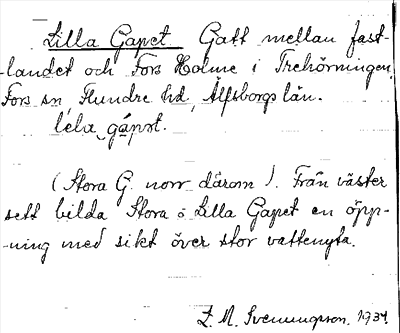 Lilla Gapet. Gatt mellan fast-
-landet och Fors Holme i Trehörningen,
Fors sn, Flundre hd, Älfsborgs län.
lela gápət.
(Stora G. norr därom). Från väster
sett bilda Stora o Lilla Gapet en öpp-
-ning med sikt över stor vattenyta.
L. M. Svenungsson, 1934.